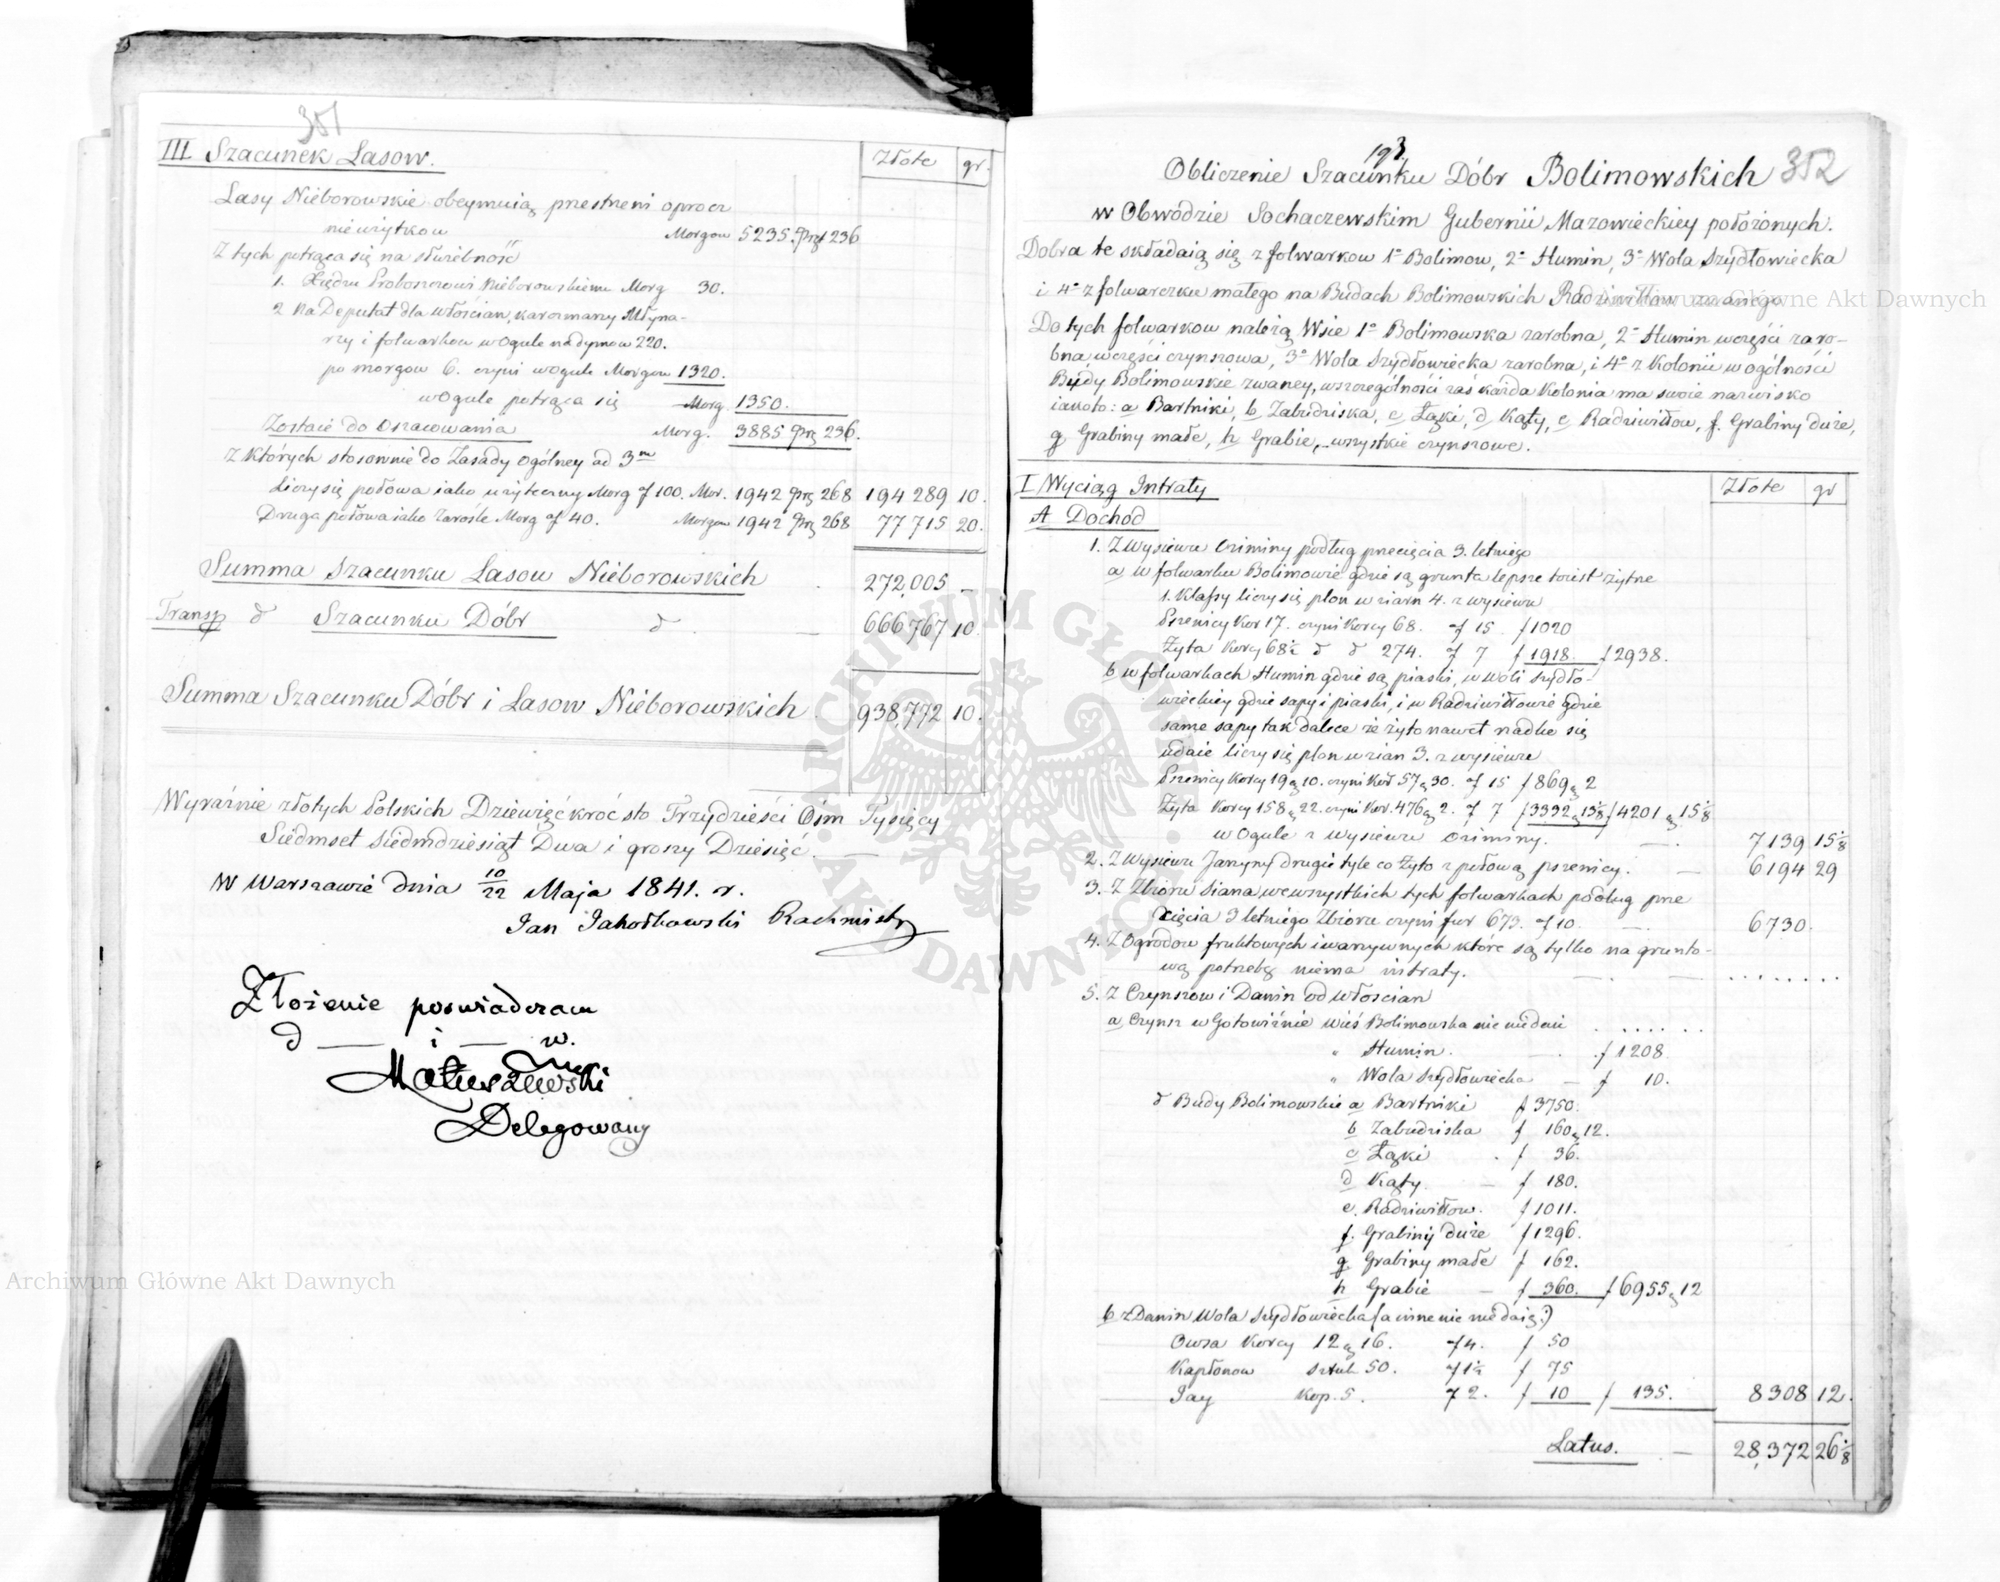 351
III Szacunek Lasow. Złote gr.
Lasy Nieborowskie obeymuią przestrzeni oprocz
nieużytkow Morgow 5235. Prę 236
Z tych potrąca się na służebność
1. Xiędzu Proboszczowi Nieborowskiemu Morg 30.
2 Na Deputat dla włościan, karczmarzy Młyna-
rzy i folwarkow w ogule na dymow 220.
po morgow 6. czyni w ogule Morgow 1320.
w ogule potrąca się Morg. 1350.
Zostaie do oszacowania Morg. 3885 Prę 236.
z których stosownie do Zasady ogólney ad 3m
Liczy się połowa iako użyteczny Morg af 100. Mor. 1942 Prę 268 194 289 10.
Druga połowa iako Zarośle Morg af 40. Morgow 1942 Prę 268 77 715 20.
Summa Szacunku Lasow Nieborowskich 272,005 —
Transp d Szacunku Dóbr d — 666,767 10.
Summa Szacunku Dóbr i Lasow Nieborowskich 938,772 10.
Wyraźnie złotych Polskich Dziewięćkroć sto Trzydzieści Ośm Tysięcy
Siedmset Siedmdziesiąt Dwa i groszy Dziesięć. —
w Warszawie dnia 10/22 Maja 1841. r.
Jan Jakołkowski Rachmistrz
Złożenie poswiadczam
d — i — w.
Matuszewski
Delegowany
193
Obliczenie Szacunku Dóbr Bolimowskich 352
w Obwodzie Sochaczewskim Gubernii Mazowieckiey położonych.
Dobra te składaią się z folwarkow 1o Bolimow, 2o Humin, 3o Wola Szydłowiecka
i 4o z folwarczku małego na Budach Bolimowskich Radziwiłłow zwanego
Do tych folwarkow należą Wsie 1o Bolimowska zarobna, 2o Humin w części zaro-
bna w części czynszowa, 3o Wola Szydłowiecka zarobna, i 4o z Kolonii w ogólności
Budy Bolimowskie zwaney, w szczególności zaś każda Kolonia ma swoie nazwisko
iakoto: a Bartniki, b Zabudziska, c Łąki, d Kąty, e Radziwiłłow, f. Grabiny duże,
g Grabiny małe, h Grabie, wszystkie czynszowe.
I Wyciąg Intraty Złote gr
A Dochod
1. Z Wysiewu Oziminy podług przecięcia 3. letniego
a w folwarku Bolimowie gdzie są grunta lepsze to iest żytne
1. Klassy liczy się plon w ziarn 4. z wysiewu
Pszenicy Kor 17. czyni Korcy 68. af 15. f 1020
Żyta Korcy 68½ d d 274. af 7 f 1918. f 2938.
b w folwarkach Humin gdzie są piaski, w Woli Szydło-
wieckiey gdzie sapy i piaski, i w Radziwiłłowie gdzie
same sapy tak dalece że żyto nawet nadto się
udaie liczy się plon w zian 3. z wysiewu
Pszenicy Korcy 19 g 10. czyni Kor 57 g 30. af 15 f 869 g 2
Żyta Korcy 158 g 22. czyni Kor. 476 g 2. af 7 f 3332 g 13⅛ f 4201 g 15⅛
w Ogule z wysiewu Oziminy. — 7139 15⅛
2. Z Wysiewu Jarzyny drugie tyle co Żyto z połową pszenicy. — 6194 29
3. Z Zbioru Siana we wszystkich tych folwarkach podług prze
cięcia 3 letniego Zbioru czyni fur 673. af 10. — 6730.
4. Z Ogrodow fruktowych i warzywnych które są tylko na grunto-
wą potrzebę niema intraty. — . . . . . . .
5. Z Czynszow i Danin od włoscian
a Czynsz w Gotowiźnie Wieś Bolimowska nie nie daie . . . . . .
" Humin. f 1208
" Wola Szydłowiecka — f 10.
d Budy Bolimowskie a Bartniki f 3750.
b Zabudziska f 160 g 12.
c Łąki f 36.
d Kąty — f 180.
e. Radziwiłłow. f 1011.
f. Grabiny duże f 1296.
g Grabiny małe f 162.
h Grabie — f 360. f 6955 g 12
b z Danin Wola Szydłowiecka (a inne nie nie daią:)
Owsa Korcy 12 g 16. af 4. f 50
Kapłonow sztuk 50. af 1½ f 75
Jay kop. 5. f 2. f 10 f 135. 8308 12.
Latus. — 28,372 26⅛
Archiwum Główne Akt Dawnych
Archiwum Główne Akt Dawnych
ARCHIWUM GŁÓWNE AKT DAWNYCH